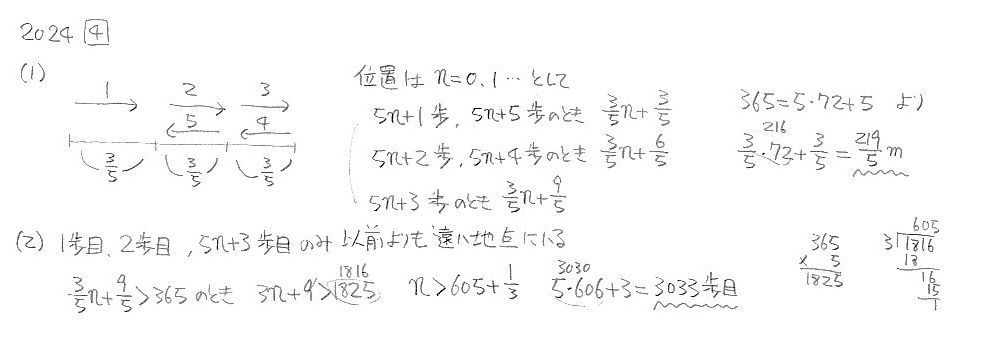 2024 4
(1)
1 2 3
5 4
3/5 3/5 3/5
位置は n=0,1… として
5n+1歩, 5n+5歩のとき 3/5n+3/5
5n+2歩, 5n+4歩のとき 3/5n+6/5
5n+3歩のとき 3/5n+9/5
365=5・72+5 より
216
3/5・72+3/5=219/5m
(2) 1歩目、2歩目, 5n+3歩目のみ以前よりも遠い地点にいる
3/5n+9/5>365のとき 3n+9>1825 n>605+1/3 5・606+3=3033歩目
1816
3030
365
× 5
1825
605
3)1816
18
16
15
1